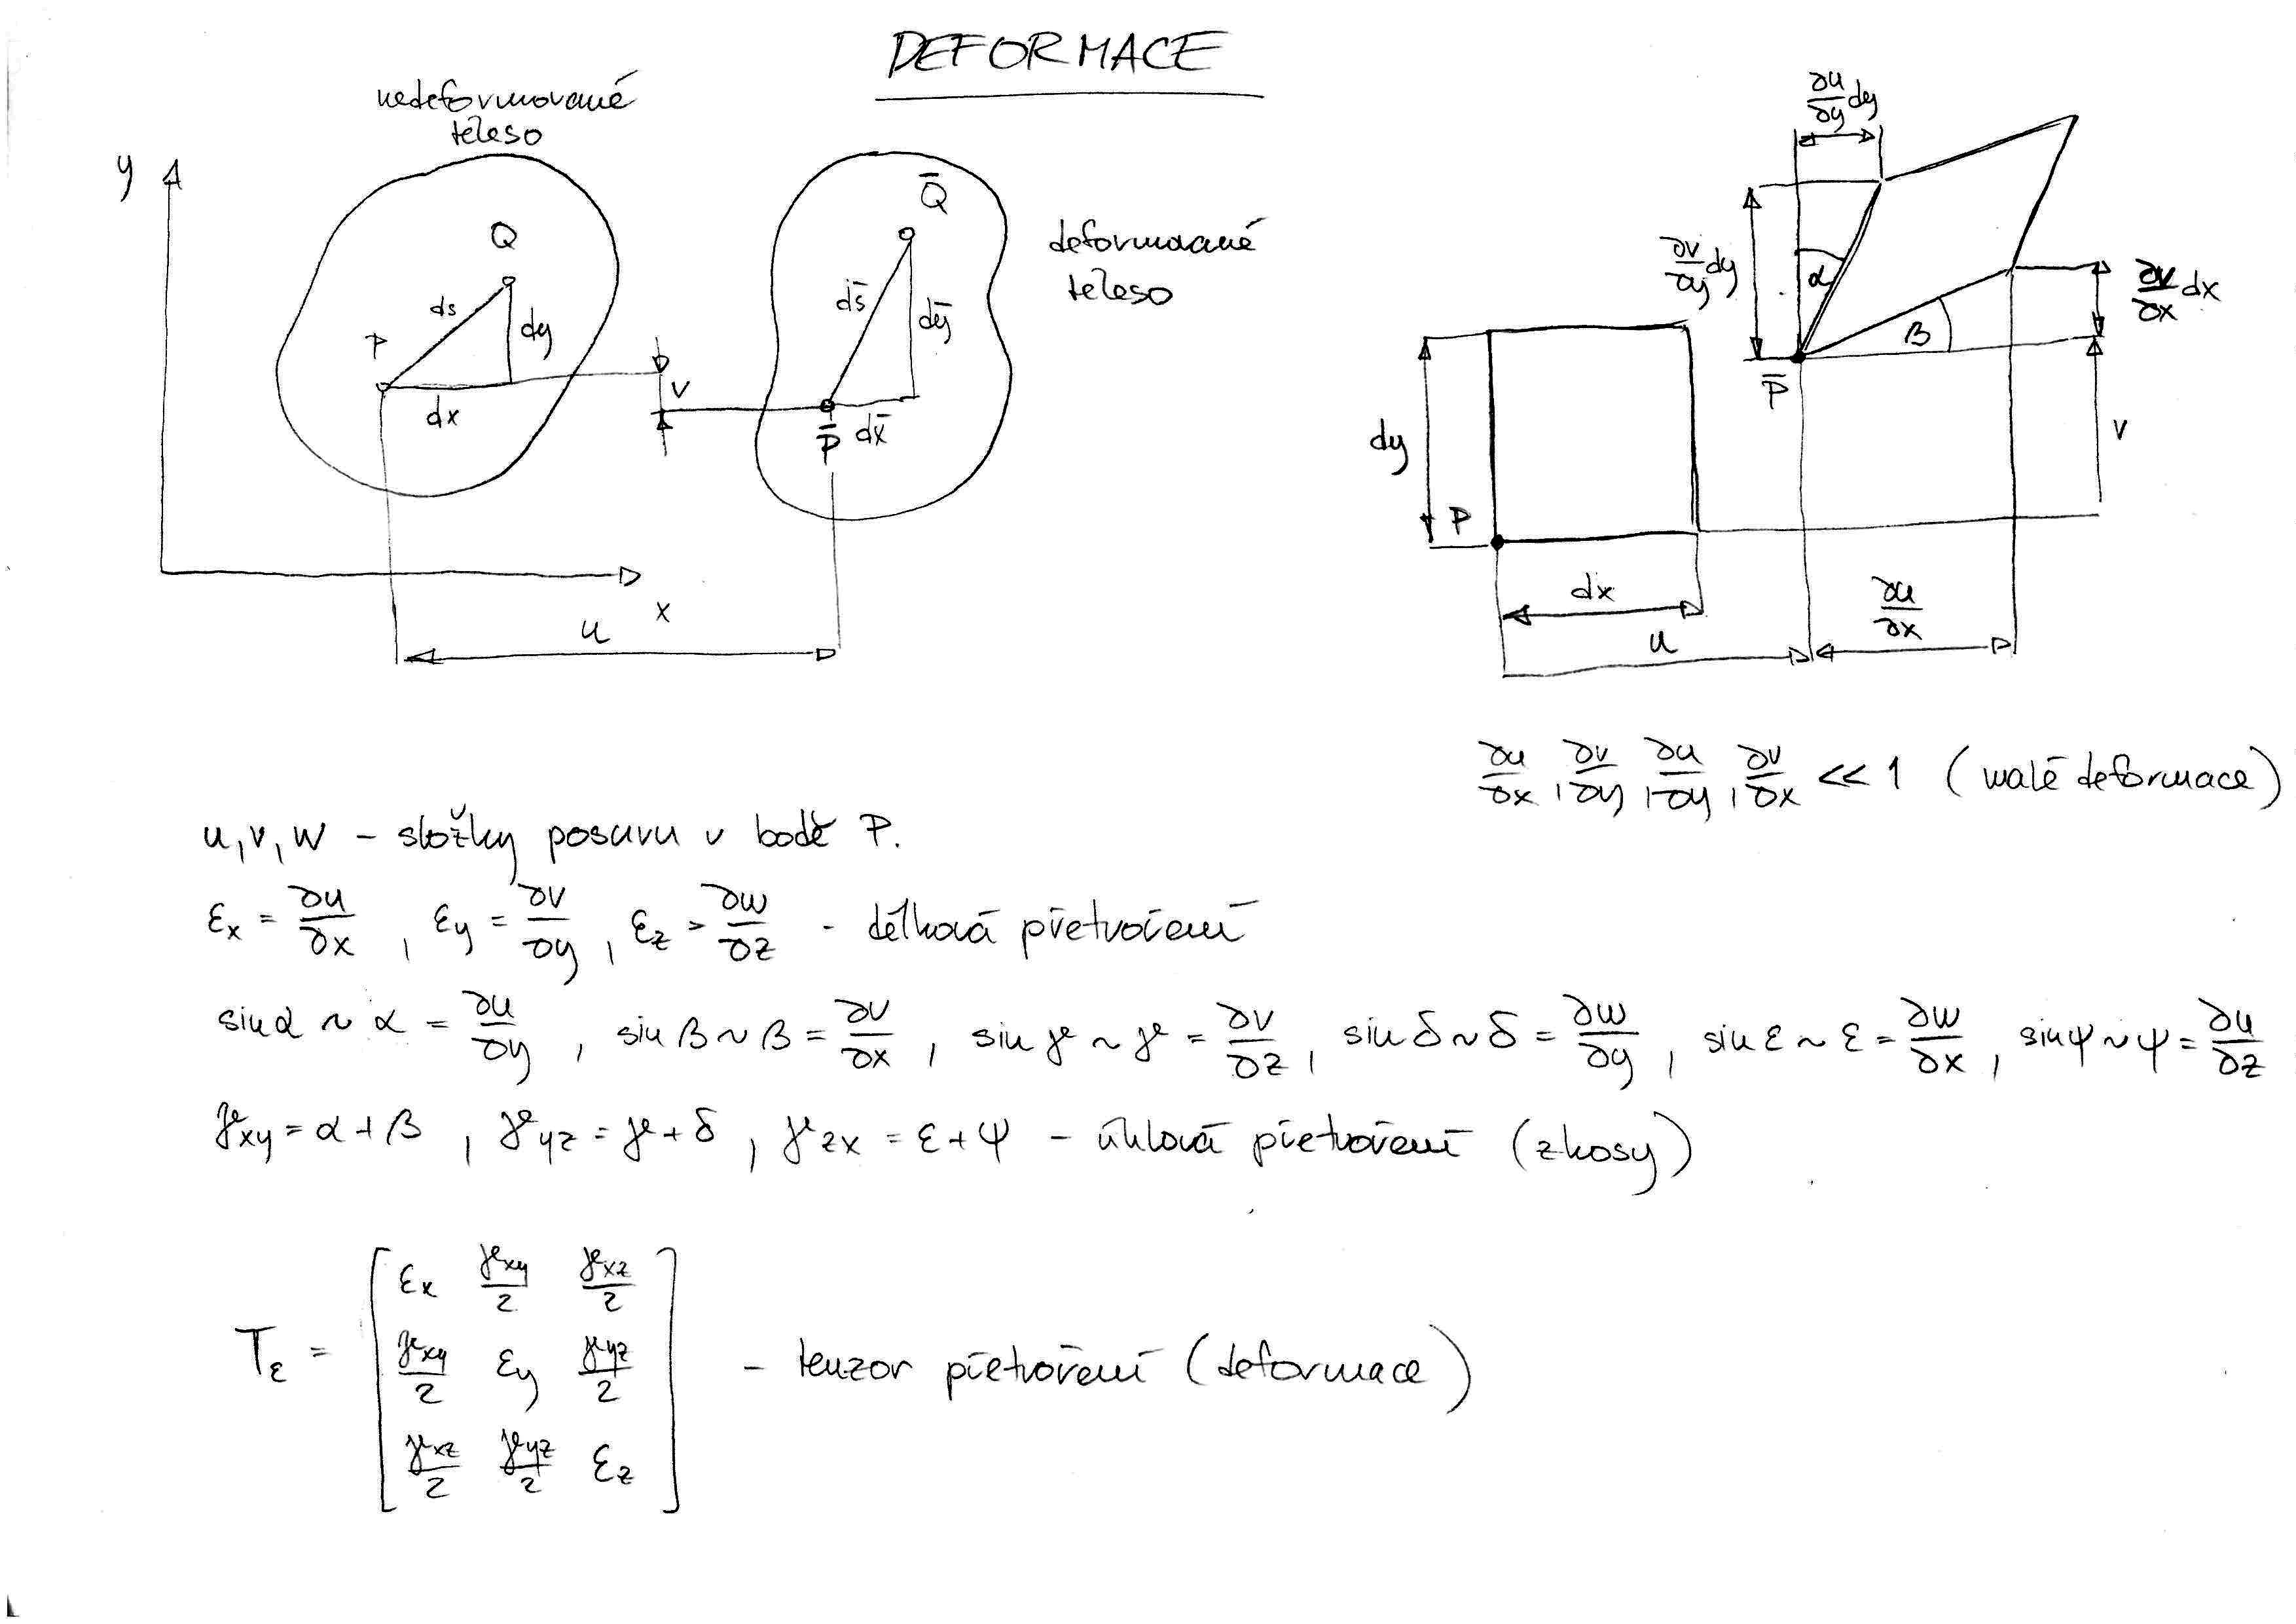 DEFORMACE
nedeformované
těleso
y
Q
ds
dy
P
dx
v
x
u
Q̅
ds̅
dy̅
P̅
dx̅
deformované
těleso
∂u/∂y dy
∂v/∂y dy
α
β
∂v/∂x dx
P̅
v
dy
P
dx
u
∂u/∂x
∂u/∂x, ∂v/∂y, ∂u/∂y, ∂v/∂x << 1 (malé deformace)
u, v, w – složky posuvu v bodě P.
εx = ∂u/∂x, εy = ∂v/∂y, εz = ∂w/∂z - délková přetvoření
sin α ~ α = ∂u/∂y, sin β ~ β = ∂v/∂x, sin γ ~ γ = ∂v/∂z, sin δ ~ δ = ∂w/∂y, sin ε ~ ε = ∂w/∂x, sin ψ ~ ψ = ∂u/∂z
γxy = α + β, γyz = γ + δ, γzx = ε + ψ – úhlová přetvoření (zkosy)
εx γxy/2 γxz/2
Tε = γxy/2 εy γyz/2 – tenzor přetvoření (deformace)
γxz/2 γyz/2 εz